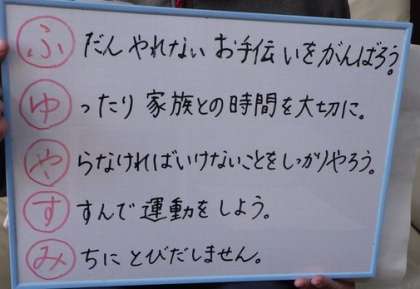 ふだんやれないお手伝いをがんばろう。
ゆったり家族との時間を大切に。
やらなければいけないことをしっかりやろう。
すすんで運動をしよう。
みちにとびだしません。